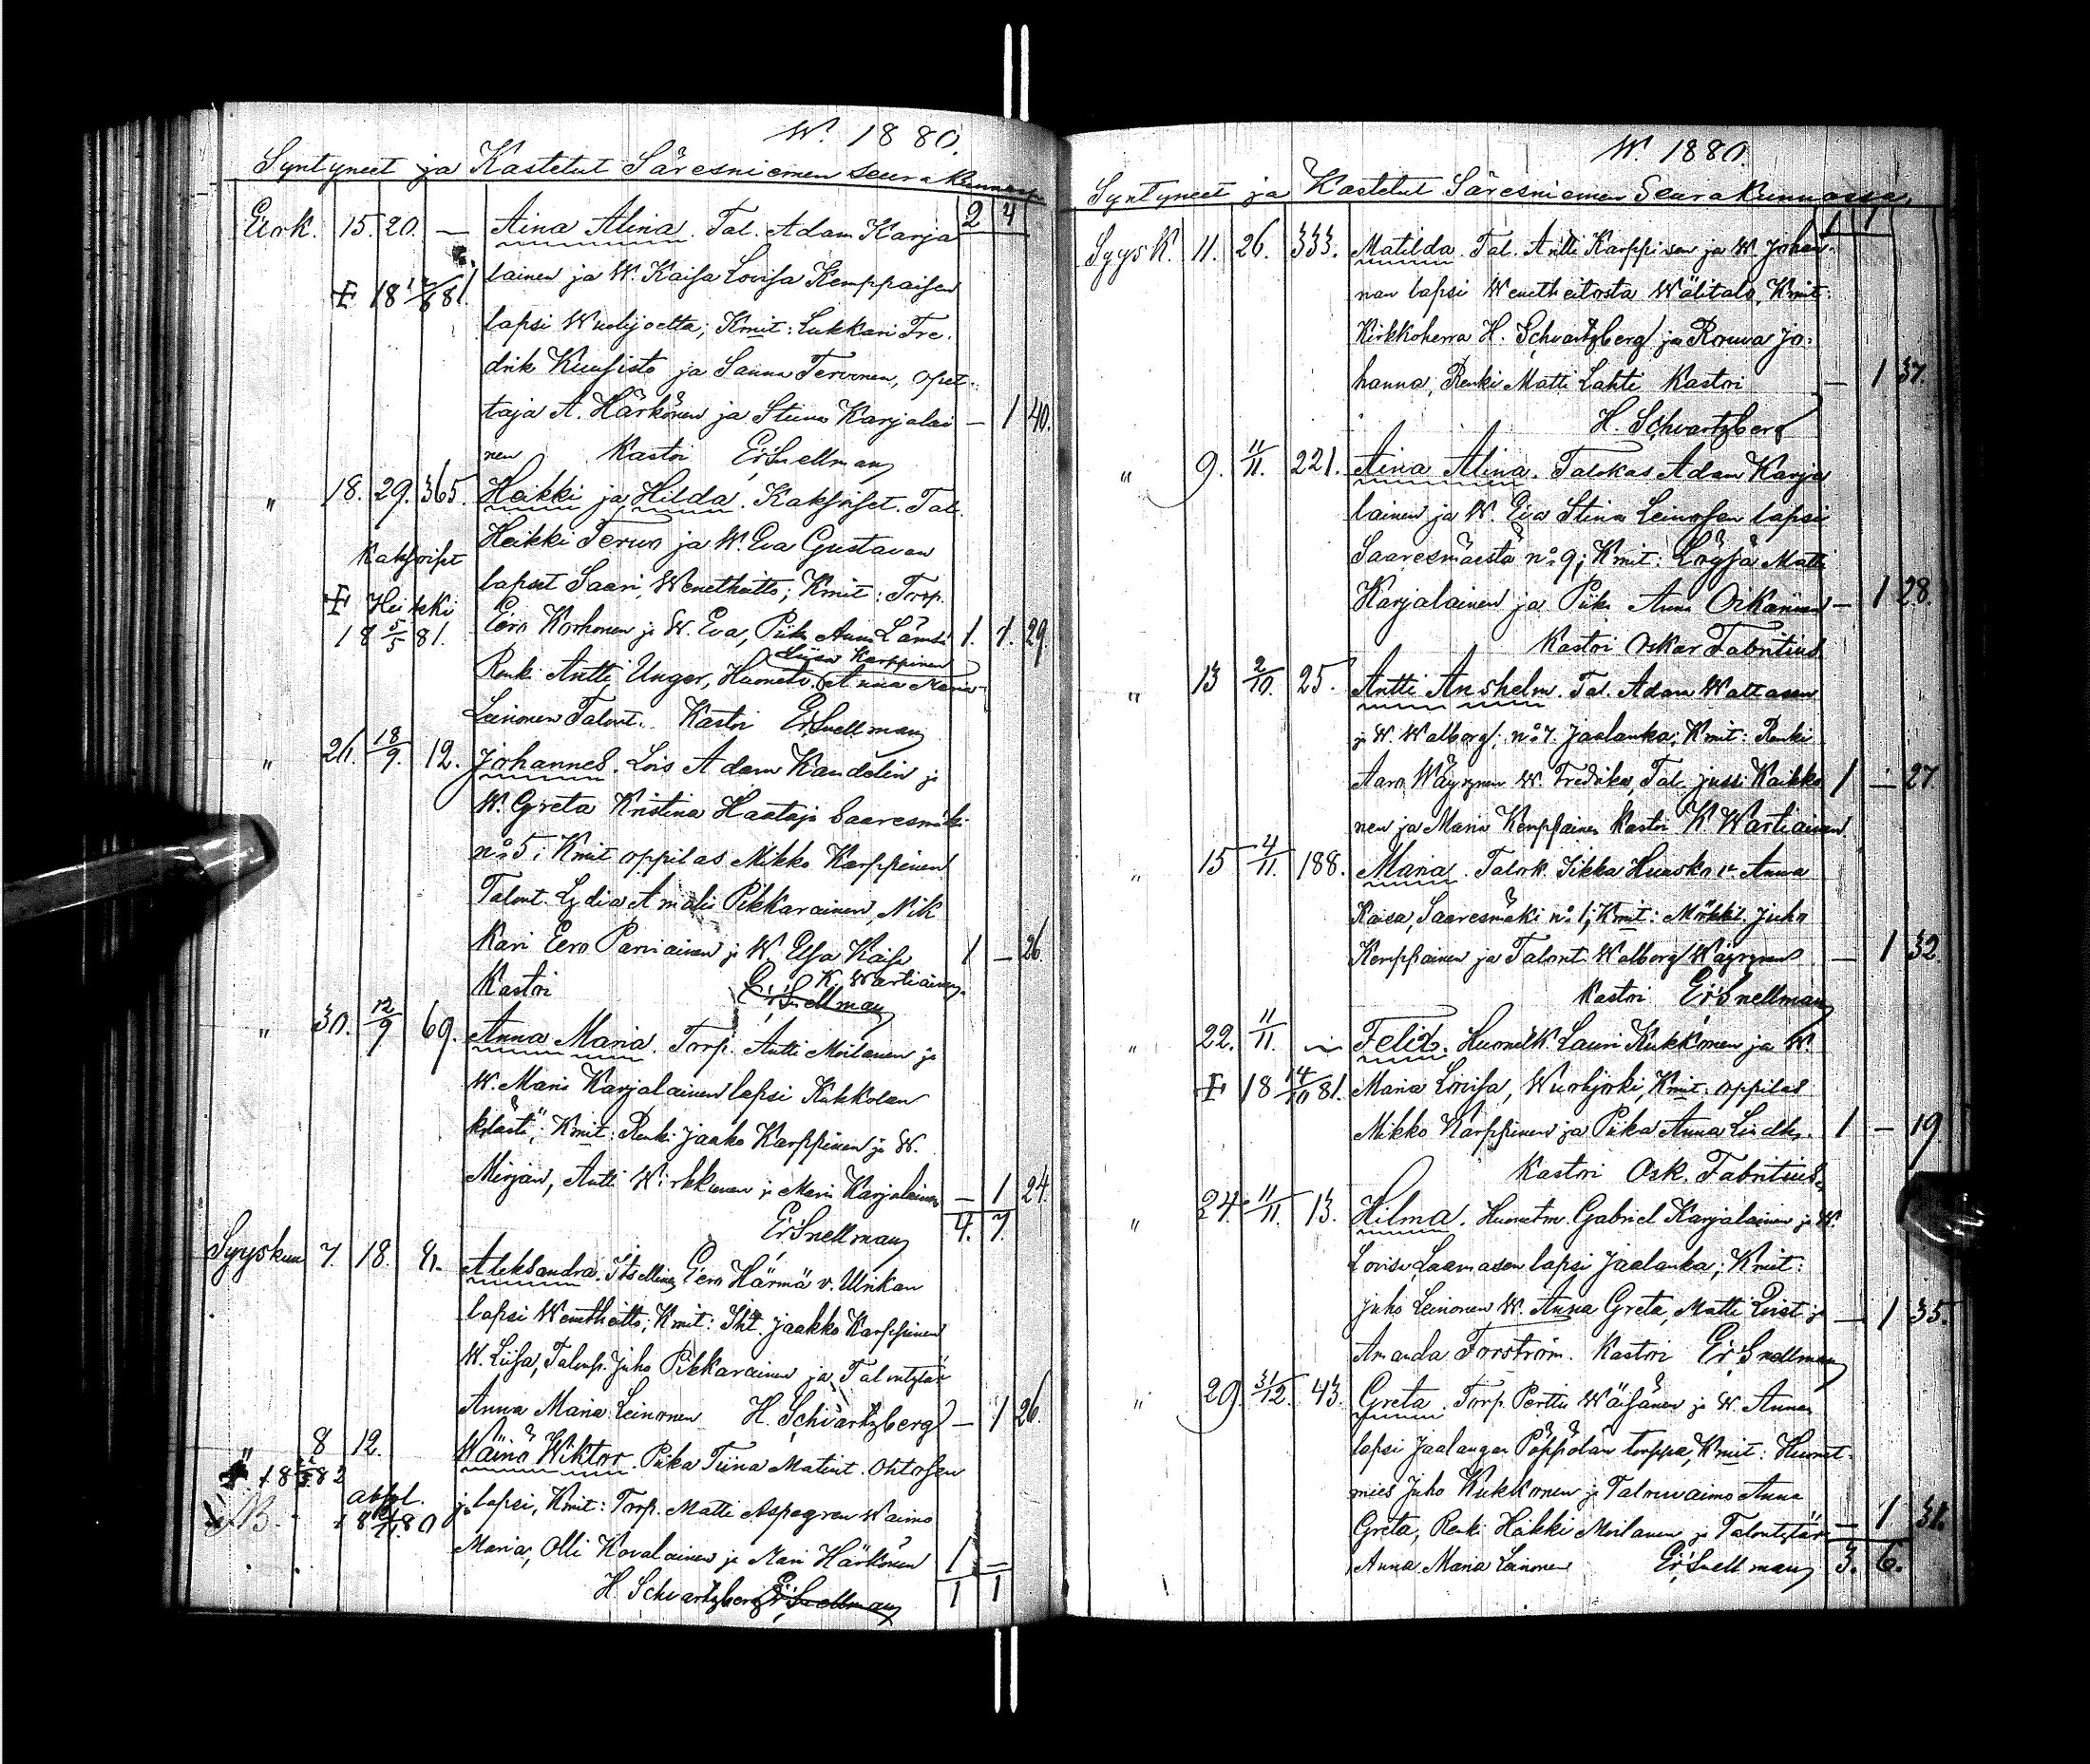 W. 1880.
Syntyneet ja Kastetut Säresniemen seurakunnassa
2 4
Elok. 15. 20. — Aina Alina. Tal. Adam Karja
lainen ja W. Kaisa Lovisa Kemppaisen
lapsi Wuolijoelta; Kmit: Lukkari Fre-
drik Kuusisto ja Sanna Tervonen, opet-
taja A. Härkönen ja Stiina Karjalai — 1 40.
nen Kastoi Er. Snellman
" 18. 29. 365. Heikki ja Hilda. Kaksoiset. Tal.
Heikki Tervo ja W. Eva Gustavan
Kaksoiset
lapset Saari, Wenetheitto; Kmit: Torp.
Ŧ Heikki
18 5/5 81. Eero Korhonen ja W. Eva, Piika Anna Lämsä 1. 1. 29.
Liisa Karppinen
Renki Antti Unger, Anna Maria
Leinonen Talont. Kastoi Er. Snellman
" 26. 18/9. 12. Johannes. Lois Adam Kandelin ja
W. Greta Kristina Haataja Saaresmäki
no 5; Kmit oppilas Mikko Karppinen
Talont. Lydia Amalia Pikkarainen, Nik
kari Eero Parviainen ja W. Elsa Kaisa 1 — 26
K. Wartiainen
Kastoi Er. Snellman
" 30. 12/9 69. Anna Maria. Torp. Antti Moilanen ja
W. Maria Karjalainen lapsi Kukkolan
kylästä; Kmit: Renki Jaako Karppinen ja W.
Mirjan, Antti Wirkkunen ja Maria Karjalainen — 1 24.
Er. Snellman 4. 7.
Syyskuu 7. 18. Aleksandra. Itsellinen Eero Härmä v. Ulrikan
lapsi Wenetheitto; Kmit: Jaakko Karppinen
W. Liisa, Talonp. Juho Pikkarainen ja Talontytär
Anna Maria Leinonen H. Schvartzberg — 1 26.
" 8 12. Wäinö Wiktor. Piika Tiina Matint. Ohtosen
lapsi, Kmit: Torp. Matti Aspegren Waimo
NB.
Maria, Olli Kovalainen ja Mari Härkönen 1 —
H. Schvartzberg Er. Snellman 1 1
W. 1880
Syntyneet ja Kastetut Säresniemen Seurakunnassa.
1 1
Syysk. 11. 26. 333. Matilda. Tal. Antti Karppinen ja W. Johan-
nan lapsi Wenetheitosta Wälitalo, Kmit:
Kirkkoherra H. Schvartzberg ja Rouva Jo-
hanna, Renki Matti Lahti Kastoi — 1 37.
H. Schvartzberg
" 9. 11/11. 221. Aina Alina. Talokas Adam Karja
lainen ja W. Eva Stina Leinosen lapsi
Saaresmäestä no 9; Kmit: Matti
Karjalainen ja Piika Anna — 1 28.
Kastoi Oskar Fabritius
" 13 2/10. 25. Antti Anshelm. Tal. Adam Wattasen
ja W. Walborg; no 7. Jaalanka; Kmit: Renki
Aaro Wäyrynen W. Fredrika, Tal. Jussi Kaikko 1 — 27.
nen ja Maria Kemppainen Kastoi K Wartiainen
" 15 4/11. 188. Maria. Talok. Iikka Huusko v. Anna
Kaisa, Saaresmäki no 1; Kmit: Mökki. Juho
Kemppainen ja Talont. Walborg Wäyrynen — 1 32
Kastoi Er. Snellman
" 22. 11/11. — Felix. Huonek. Lauri Kukkonen ja W.
Ŧ 18 14/10 81. Maria Lovisa, Wuolijoki, Kmit: oppilas
Mikko Karppinen ja Piika Anna 1 — 19
Kastoi Osk. Fabritius
" 24. 11/11. 13. Hilma. Huonetm. Gabriel Karjalainen ja W.
Lovisa Laamasen lapsi Jaalanka; Kmit:
Juho Leinonen W. Anna Greta, Matti ja — 1 35.
Amanda Forström. Kastoi Er. Snellman
" 29. 31/12. 43. Greta. Torp. Perttu Wäisänen ja W. Annan
lapsi Jaalangan Pöppölän torppa, Kmit: Huonet-
mies Juho Kukkonen ja Talonvaimo Anna
Greta, Renki Heikki Moilanen ja Talontytär — 1 31.
Anna Maria Leinonen Er. Snellman 3. 6.